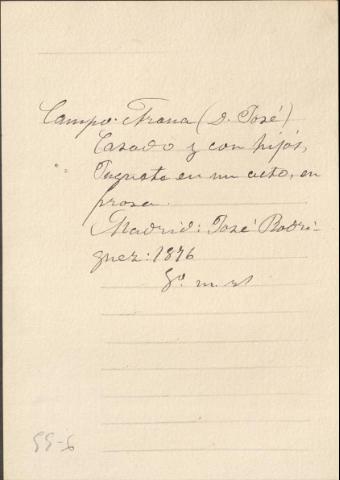 Campo-Arana (D. José)
Casado y con hijos,
Juguete en un acto, en
prosa.
Madrid: José Rodrí-
guez: 1876
8º m. rl
55-6